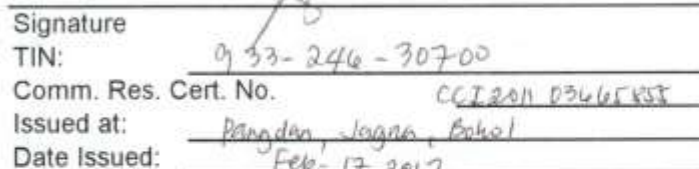 Signature
TIN: 933-246-30700
Comm. Res. Cert. No. CCI2011 03665855
Issued at: Pangdan, Jagna, Bohol
Date Issued: Feb-17-2012